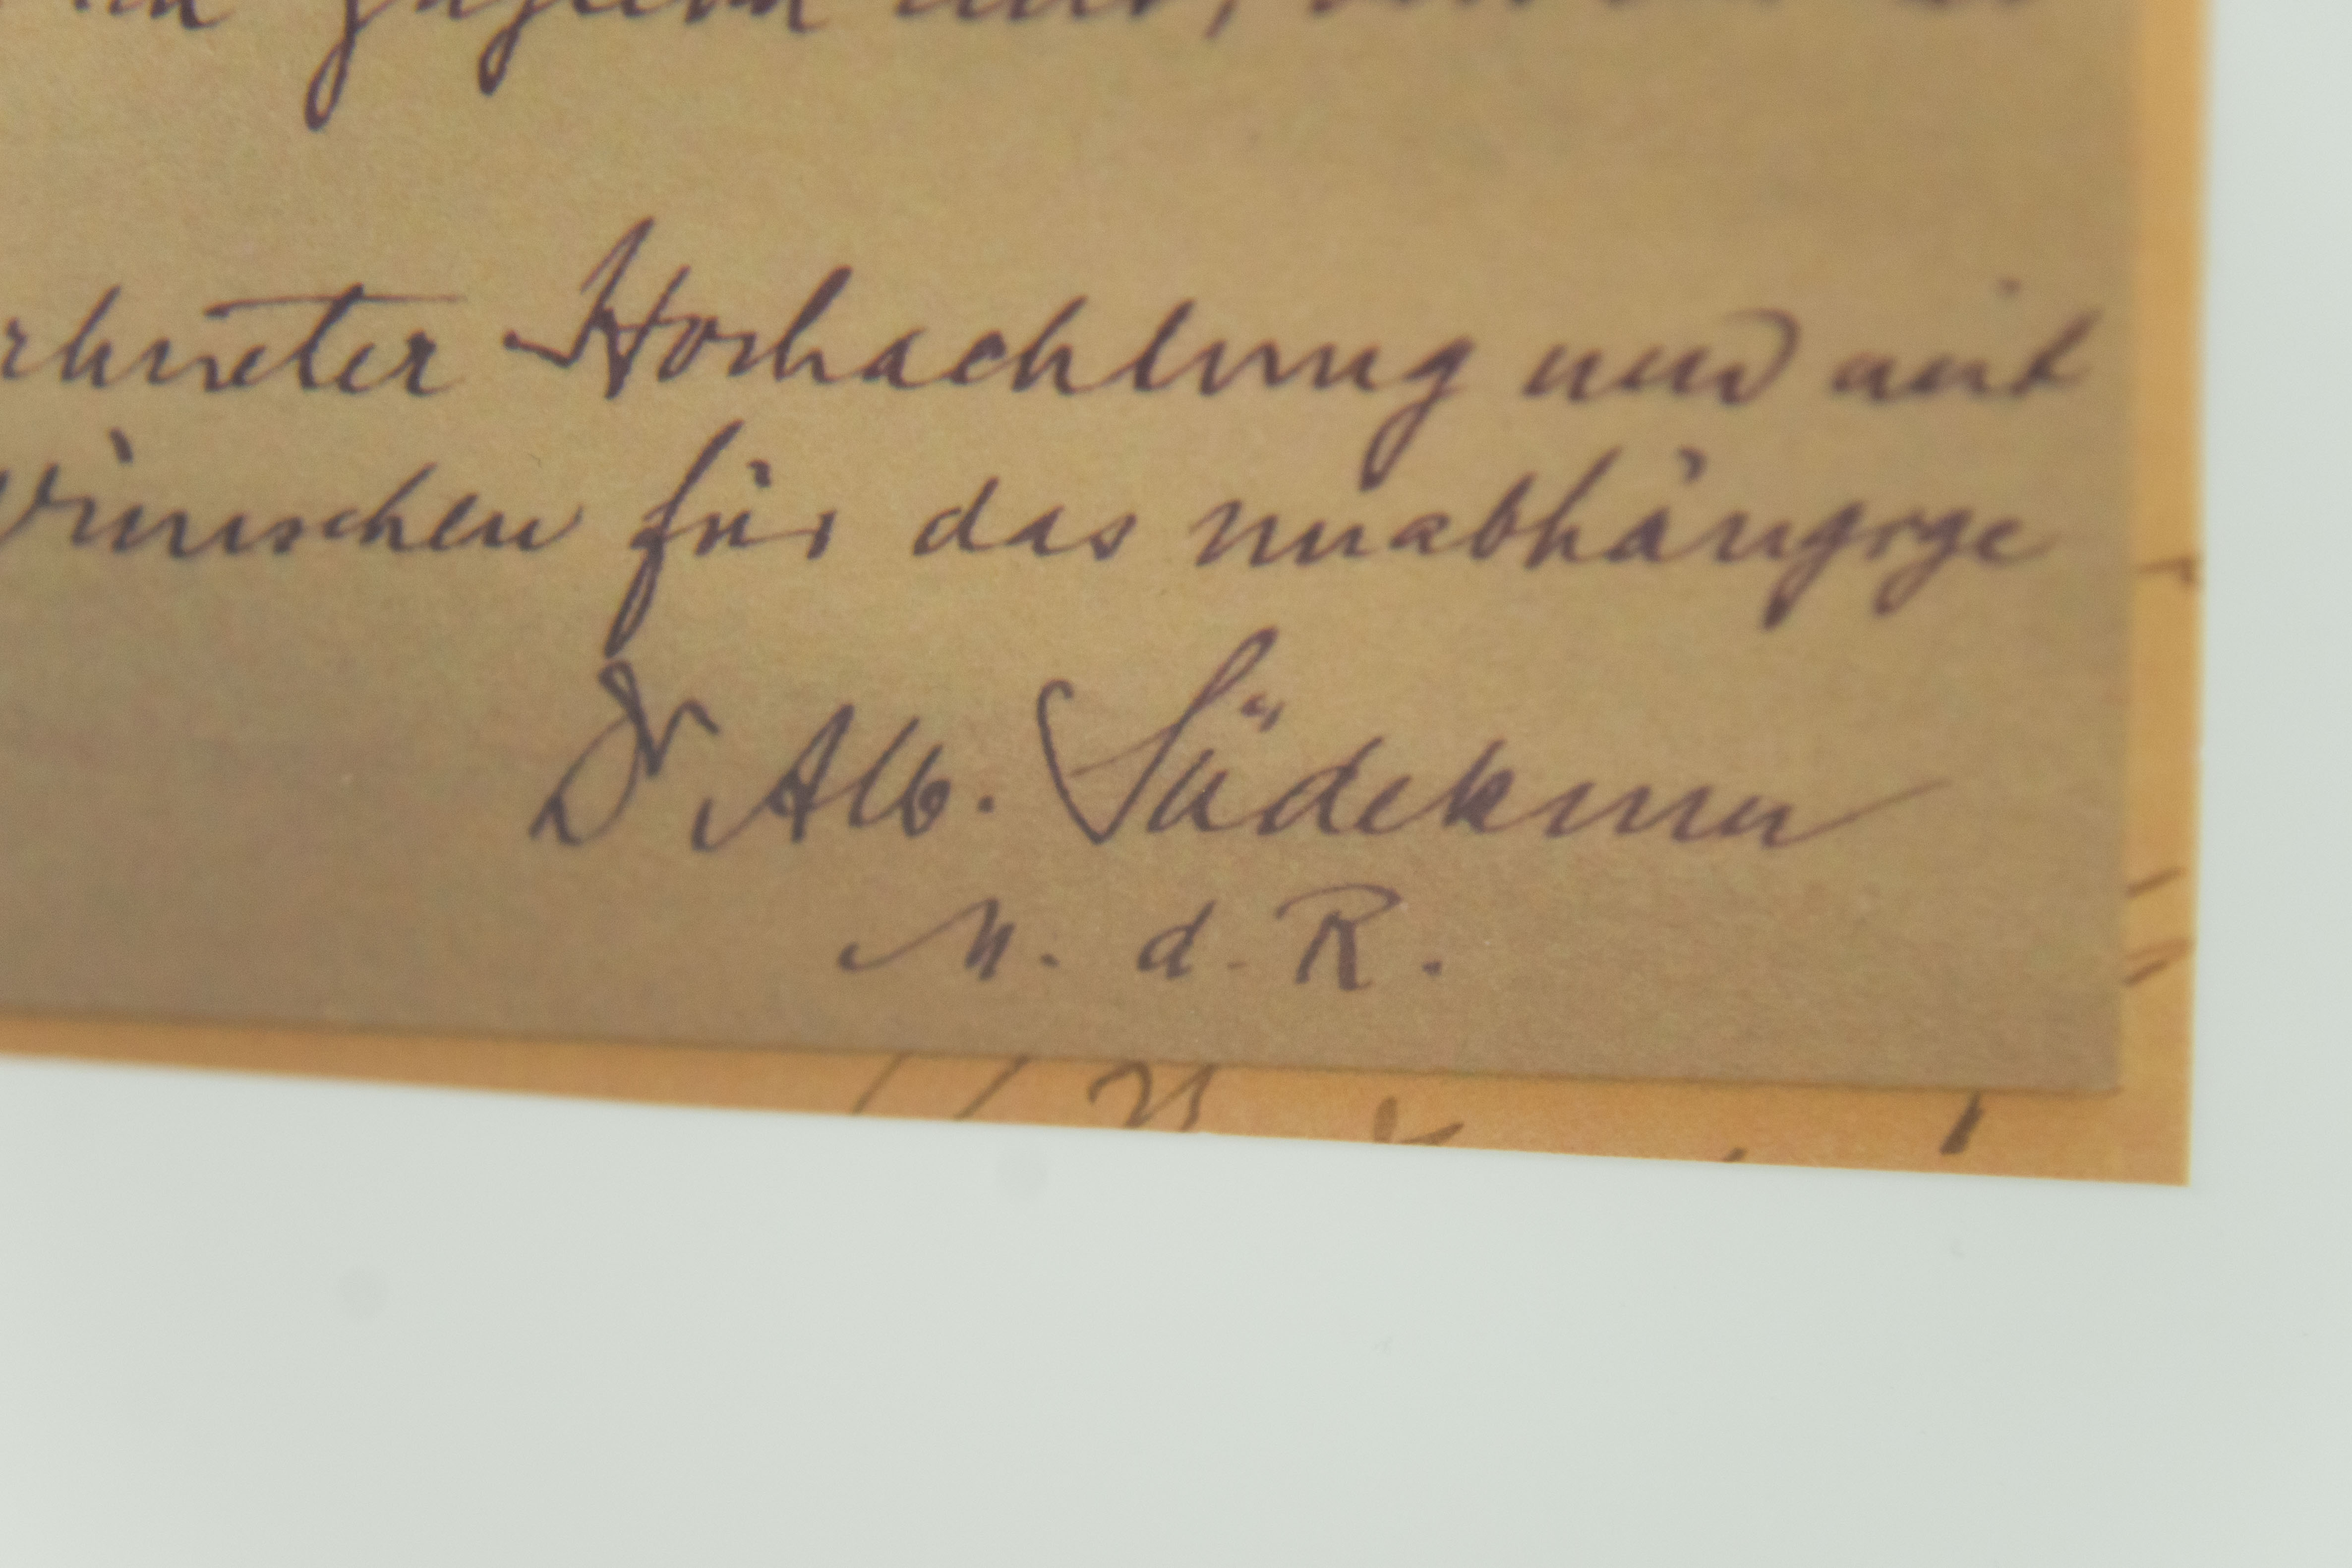 rchneter Hochachtung und mit
Wünschen für das unabhängige
Dr Alb. Südekum
M. d. R.